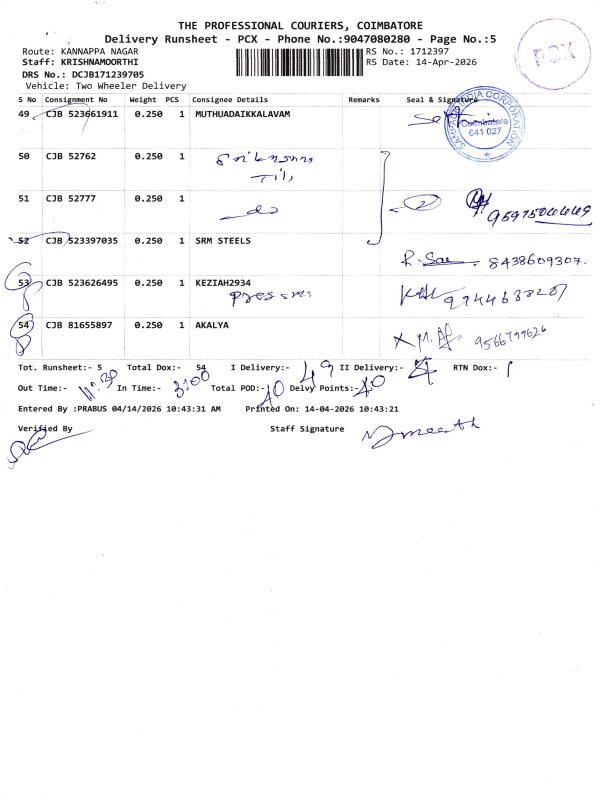 THE PROFESSIONAL COURIERS, COIMBATORE
Delivery Runsheet - PCX - Phone No.:9047080280 - Page No.:5
PCX
Route: KANNAPPA NAGAR
RS No.: 1712397
Staff: KRISHNAMOORTHI
RS Date: 14-Apr-2026
DRS No.: DCJB171239705
Vehicle: Two Wheeler Delivery
S No Consignment No Weight PCS Consignee Details Remarks Seal & Signature
49 CJB 523661911 0.250 1 MUTHUADAIKKALAVAM
CORPORATION
Coimbatore
641 027
50 CJB 52762 0.250 1
51 CJB 52777 0.250 1
do
52 CJB 523397035 0.250 1 SRM STEELS
8438609307.
53 CJB 523626495 0.250 1 KEZIAH2934
54 CJB 81655897 0.250 1 AKALYA
9566799626
Tot. Runsheet:- 5 Total Dox:- 54 I Delivery:- 49 II Delivery:- 4 RTN Dox:- 1
Out Time:- 11.30 In Time:- 3:00 Total POD:- 40 Delvy Points:- 40
Entered By :PRABUS 04/14/2026 10:43:31 AM Printed On: 14-04-2026 10:43:21
Verified By Staff Signature